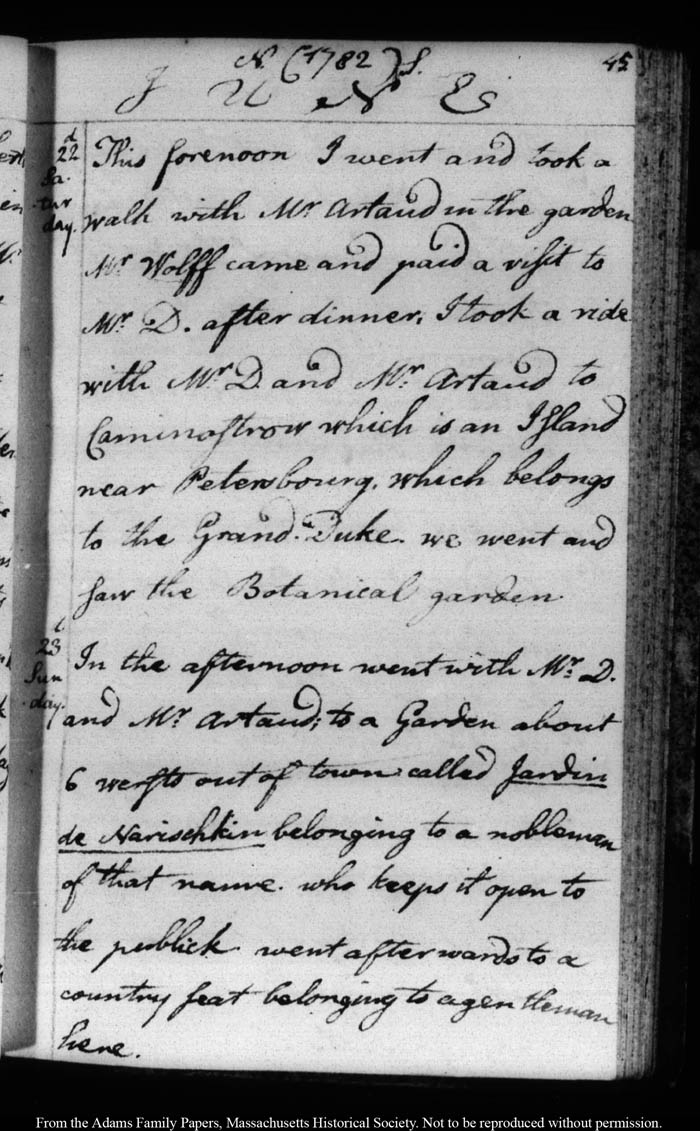 N. (1782) S. 45
J U N E
22d Satur day. This forenoon I went and took a
walk with Mr. Artaud in the garden
Mr. Wolff came and paid a visit to
Mr. D. after dinner, I took a ride
with Mr. D. and Mr. Artaud to
Caminostrow which is an Island
near Petersbourg, which belongs
to the Grand. Duke. we went and
saw the Botanical garden
23 Sun day. In the afternoon went with Mr. D.
and Mr. Artaud; to a Garden about
6 wersts out of town called Jardin
de Narischkin belonging to a nobleman
of that name. who keeps it open to
the publick. went afterwards to a
country seat belonging to a gentleman
here.
From the Adams Family Papers, Massachusetts Historical Society. Not to be reproduced without permission.